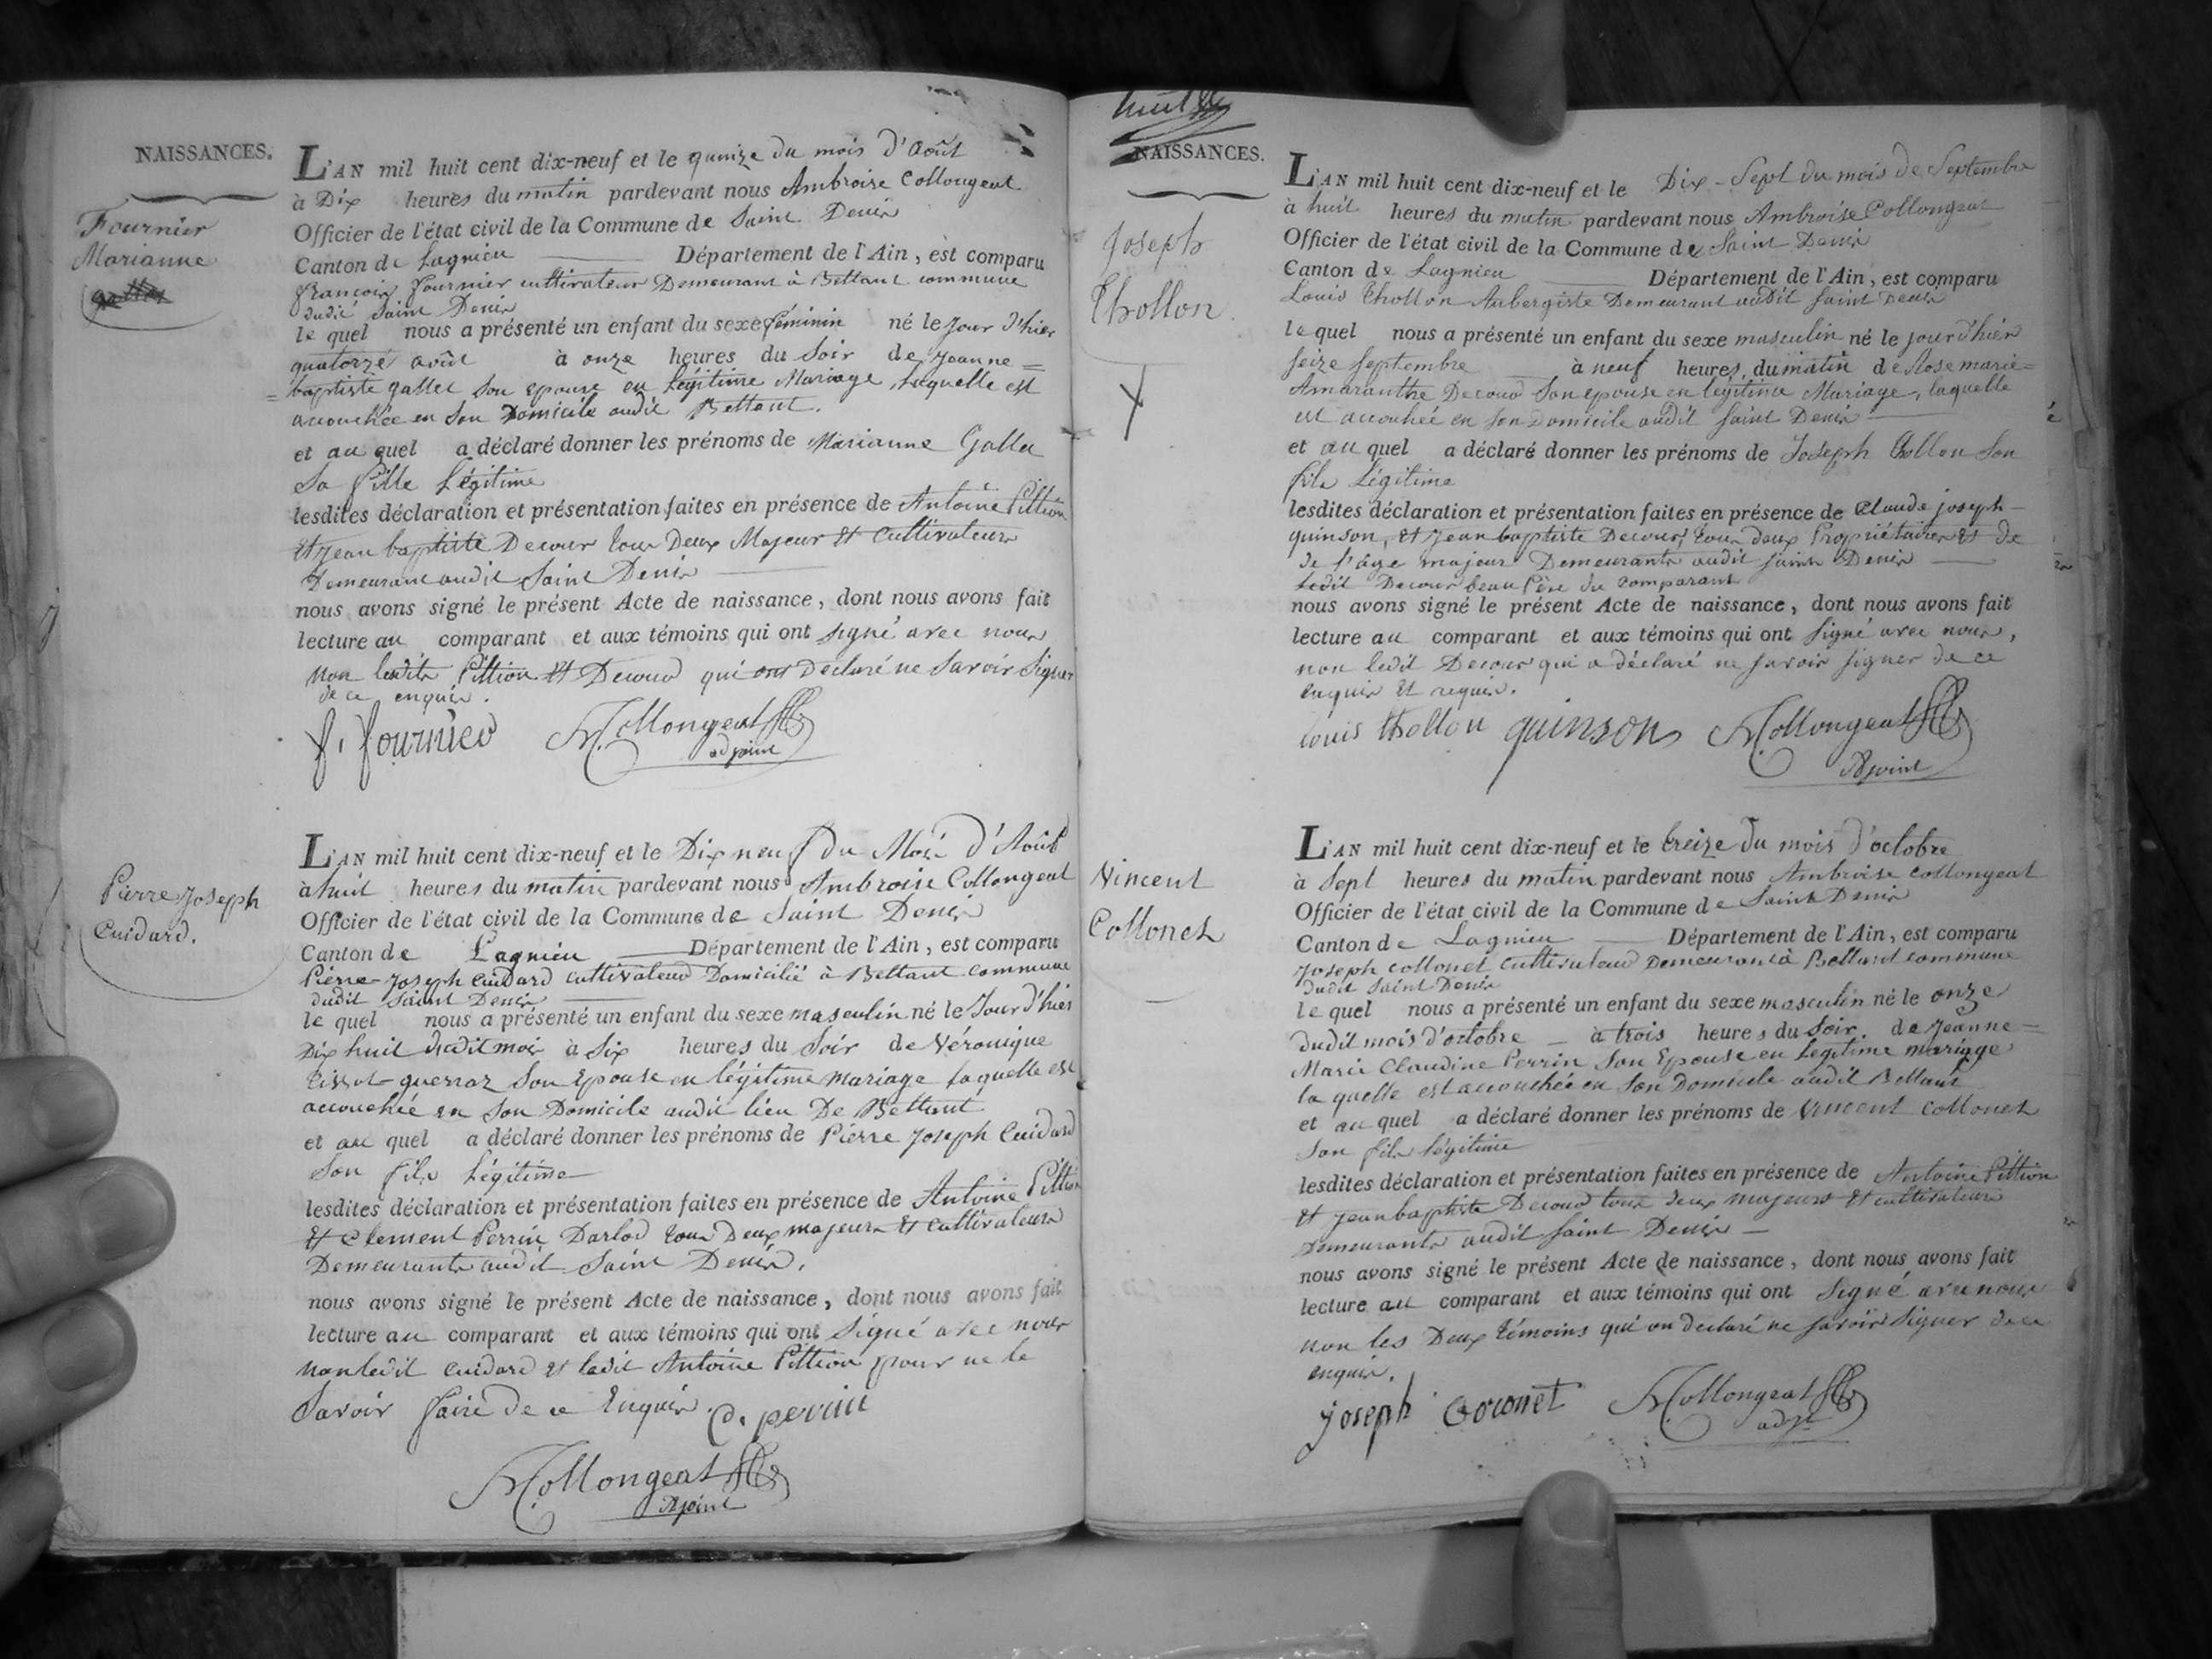 NAISSANCES.
Fournier
Marianne
L'AN mil huit cent dix-neuf et le quinze du mois d'Août
à Dix heures du matin pardevant nous Ambroise Collongeat
Officier de l'état civil de la Commune de Saint Denis
Canton de Lagnieu Département de l'Ain, est comparu
françois fournier cultivateur Demeurant à Bettant commune
dudit Saint Denis
le quel nous a présenté un enfant du sexe féminin né le jour d'hier
quatorze août à onze heures du Soir de jeanne =
= baptiste gallet son epouse en légitime Mariage, laquelle est
accouchée en son Domicile audit Bettant.
et au quel a déclaré donner les prénoms de Marianne Gallet
Sa fille Légitime
lesdites déclaration et présentation faites en présence de Antoine Pittion
Et jean baptiste Decour tous Deux Majeur Et Cultivateurs
Demeurant audit Saint Denis
nous avons signé le présent Acte de naissance, dont nous avons fait
lecture au comparant et aux témoins qui ont signé avec nous
Non lesdits Pittion Et Decour qui ont déclaré ne Savoir Signer
de ce enquis.
f. fournier Collongeat
adjoint
Pierre Joseph
Cuidard.
L'AN mil huit cent dix-neuf et le Dix neuf du Mois d'Août
à huit heures du matin pardevant nous Ambroise Collongeat
Officier de l'état civil de la Commune de Saint Denis
Canton de Lagnieu Département de l'Ain, est comparu
Pierre-Joseph Cuidard cultivateur Domicilié à Bettant commune
dudit Saint Denis
le quel nous a présenté un enfant du sexe masculin né le Jour d'hier
Dix huit dudit mois à Six heures du Soir de Véronique
Tissot-guerraz Son Epouse en légitime mariage laquelle est
accouchée en Son Domicile audit lieu De Bettant
et au quel a déclaré donner les prénoms de Pierre Joseph Cuidard
Son fils Légitime
lesdites déclaration et présentation faites en présence de Antoine Pittion
Et Clement Perrin Darlod tous Deux majeurs Et Cultivateurs
Demeurants audit Saint Denis.
nous avons signé le présent Acte de naissance, dont nous avons fait
lecture au comparant et aux témoins qui ont Signé avec nous
Non ledit Cuidard et ledit Antoine Pittion pour ne le
Savoir faire de ce Enquis. C. perrin
Collongeat
Ajoint
huit
NAISSANCES.
Joseph
Thollon
L'AN mil huit cent dix-neuf et le Dix-Sept du mois de Septembre
à huit heures du matin pardevant nous Ambroise Collongeat
Officier de l'état civil de la Commune de Saint Denis
Canton de Lagnieu Département de l'Ain, est comparu
Louis Thollon Aubergiste Demeurant audit Saint Denis
le quel nous a présenté un enfant du sexe masculin né le jour d'hier
seize septembre à neuf heures du matin de Rose marie =
Amaranthe Decour Son epouse en légitime Mariage, laquelle
est accouchée en son Domicile audit Saint Denis
et au quel a déclaré donner les prénoms de Joseph Thollon Son
fils Légitime
lesdites déclaration et présentation faites en présence de Claude joseph -
quinson, Et jean baptiste Decour, tous deux Propriétaires Et de
de l'âge majeur Demeurants audit saint Denis
ledit Decour beau Père du comparant
nous avons signé le présent Acte de naissance, dont nous avons fait
lecture au comparant et aux témoins qui ont signé avec nous,
non ledit Decour qui a déclaré ne savoir signer de ce
enquis Et requis.
louis thollon quinson Collongeat
Ajoint
Vincent
Collonet
L'AN mil huit cent dix-neuf et le treize du mois d'octobre
à Sept heures du matin pardevant nous Ambroise Collongeat
Officier de l'état civil de la Commune de Saint Denis
Canton de Lagnieu Département de l'Ain, est comparu
Joseph Collonet Cultivateur Demeurant à Bettant commune
dudit Saint Denis
le quel nous a présenté un enfant du sexe masculin né le onze
dudit mois d'octobre à trois heures du Soir. de Jeanne =
Marie Claudine Perrin Son Epouse en Legitime mariage
la quelle est accouchée en Son Domicile audit Bettant
et au quel a déclaré donner les prénoms de Vincent Collonet
Son fils légitime
lesdites déclaration et présentation faites en présence de Antoine Pittion
Et jean baptiste Decour tous deux majeurs Et cultivateurs
Demeurants audit Saint Denis
nous avons signé le présent Acte de naissance, dont nous avons fait
lecture au comparant et aux témoins qui ont Signé avec nous
non les Deux témoins qui on declaré ne savoir Signer de ce
enquis.
joseph Coronet Collongeat